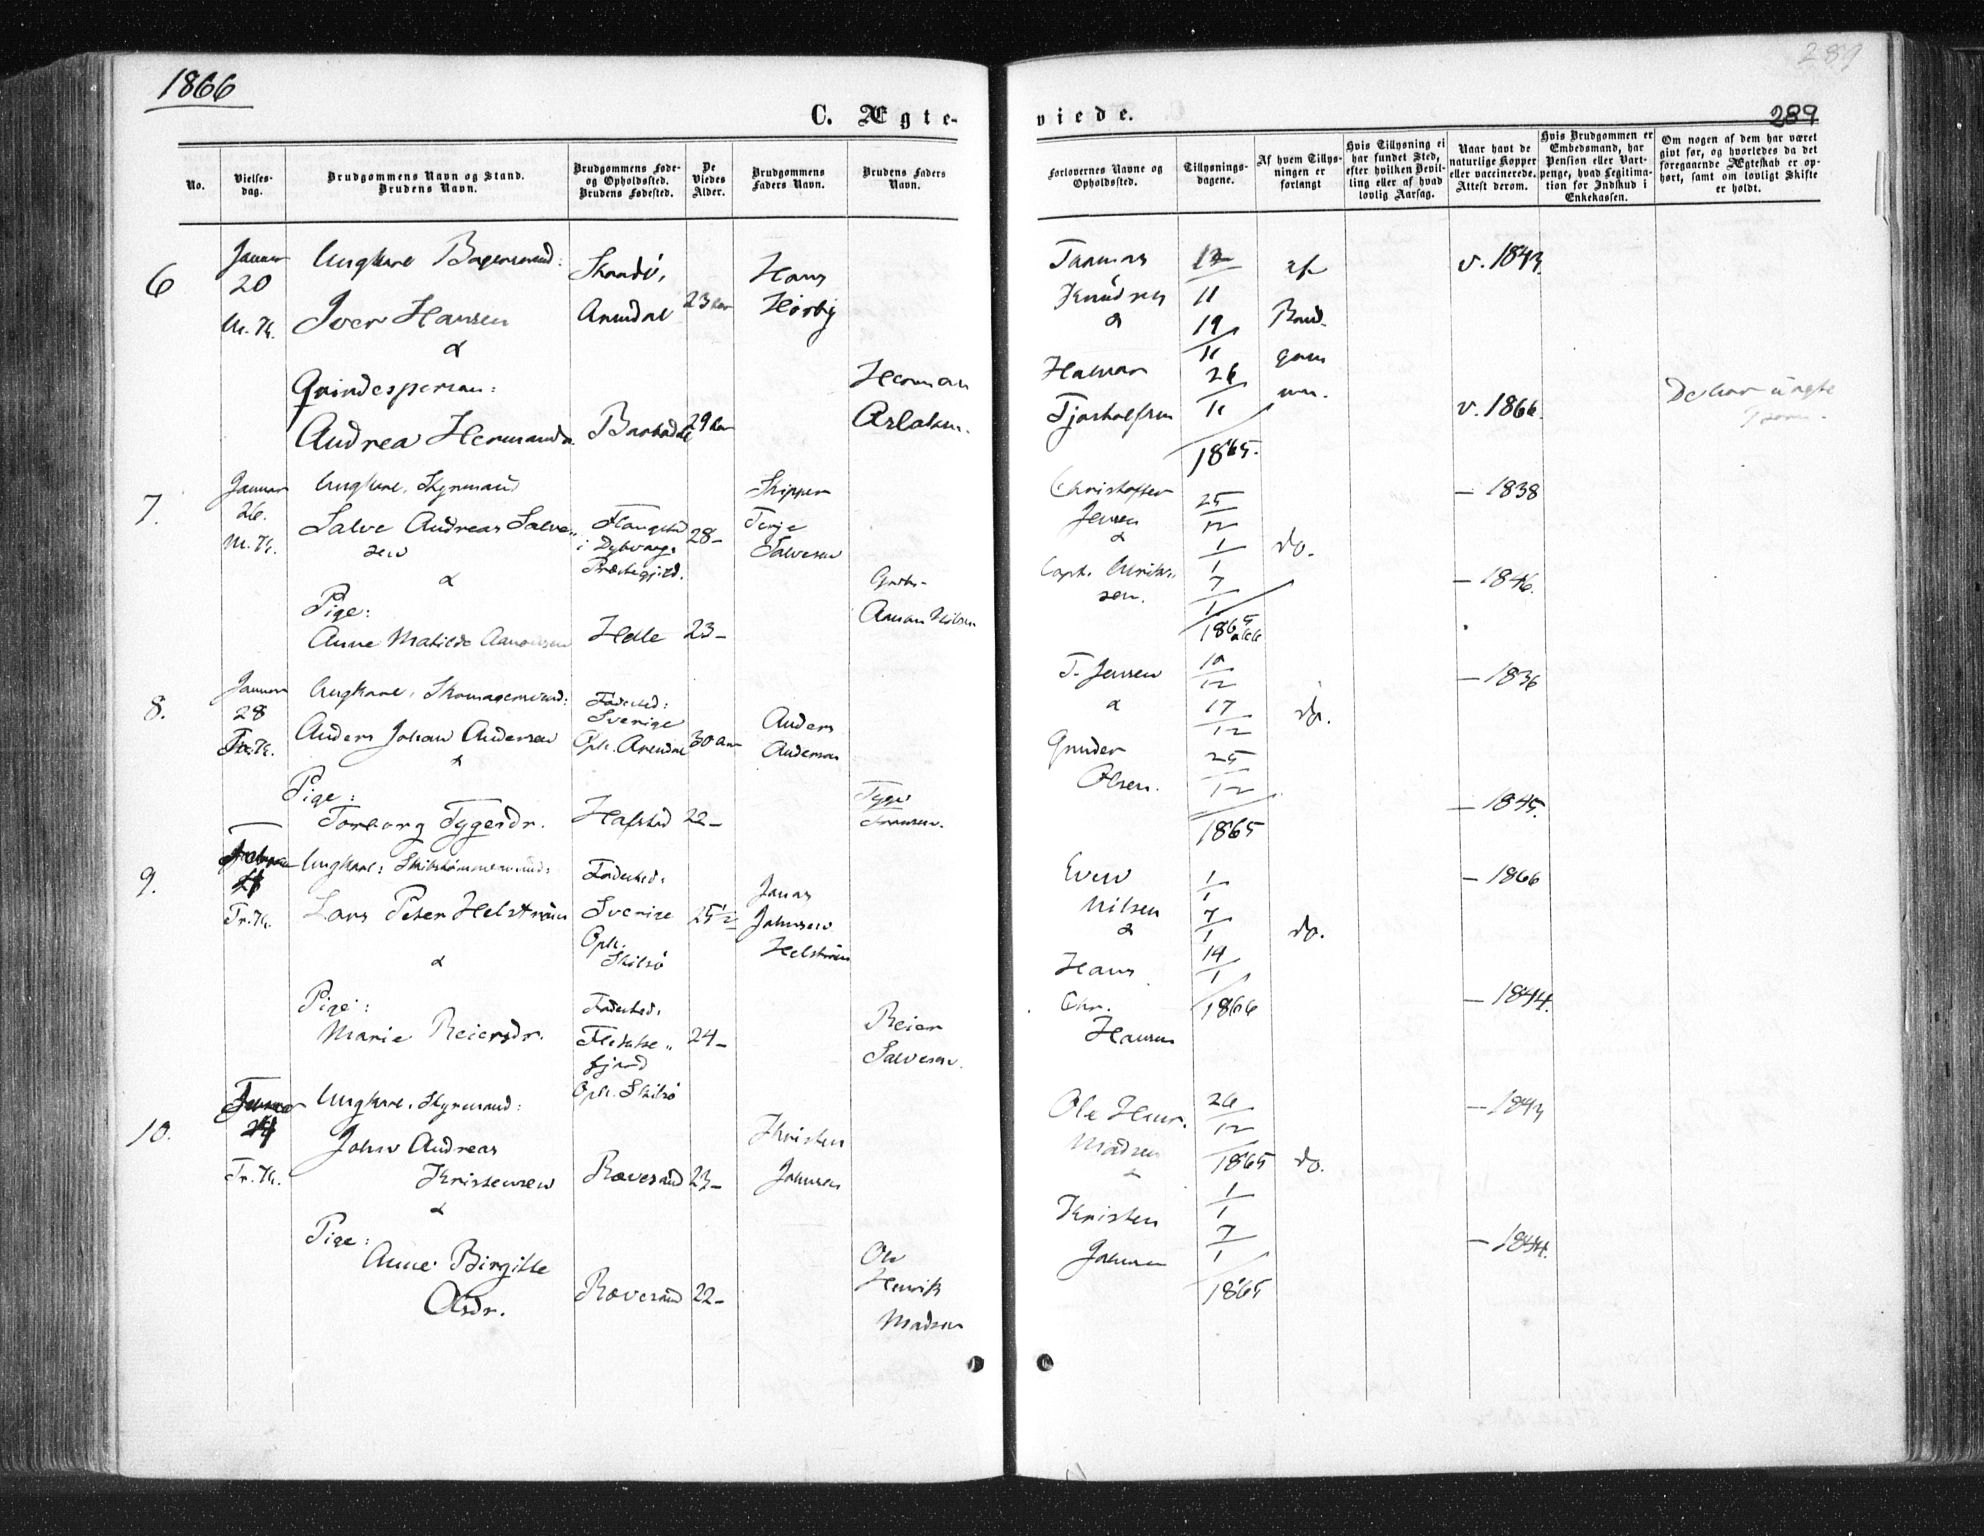 1866
289
289
C. Ægte-
viede.
No.
Vielses-
dag.
Brudgommens Navn og Stand.
Brudens Navn.
Brudgommens Føde-
og Opholdssted.
Brudens Fødested.
De
Viedes
Alder.
Brudgommens
Faders Navn.
Brudens Faders
Navn.
Forlovernes Navne og
Opholdssted.
Tillysnings-
dagene.
Af hvem Tillys-
ningen er
forlangt
Hvis Tillysning ei
har fundet Sted,
efter hvilken Bevil-
ling eller af hvad
lovlig Aarsag.
Naar havt de
naturlige Kopper
eller vaccinerede.
Attest derom.
Hvis Brudgommen er
Embedsmand, har
Pension eller Vart-
penge, hvad Legitima-
tion for Indskud i
Enkekassen.
Om nogen af dem har været
gift før, og hvorledes da det
foregaaende Ægteskab er op-
hørt, samt om lovligt Skifte
er holdt.
6
Januar
20
Ungkarl
Iver Hansen
&
Qvindesperson:
Andrea Hermansdr.
Arendal
29 Aar
Hans
Herman
Knudsen
&
Halvor
12/11
19/11
26/11
1865.
af
Brud-
gom
men.
v. 1843
v. 1866
7.
Januar
26.
Ungkarl, Styrmand
Salve Andreas Salve-
sen
&
Pige:
Anne Matilde
i Dybvaags
Præstegjeld.
Helle
28-
23-
Skipper
Terje
Salvesen
Christoffer
Jensen
&
25/12
1/1
7/1
do.
- 1838
- 1846.
8.
Januar
28
Tr. K.
Ungkarl, Skomagersvend:
Anders Johan Andersen
&
Pige:
Torborg Tygesdr.
Fødested:
Sverige
Oph. Arendal
30 Aar
22-
Anders
Andersen
Tyge
T. Jensen
&
Gunder
Olsen.
10/12
17/12
25/12
1865
do.
- 1836
- 1845.
9.
Tr. K.
Ungkarl: Skibstømmermand:
Lars Peter Helstrøm
&
Pige:
Marie Reiersdr.
Fødested:
Sverige
Oph.
Skilsø
Fødested:
Flekke-
fjord
Oph. Skilsø
25½
24-
Jonas
Johnsen
Helstrøm
Reier
Salvesen.
Even
Nilsen
&
Hans
Chr.
Hansen
1/1
7/1
14/1
1866
do.
- 1866
- 1844.
10.
Tr. K.
Ungkarl, Styrmand:
John Andreas
Kristensen
&
Pige:
Anne Birgitte
Olsdr.
Rævesand
Rævesand
23-
22-
Kristen
Johnsen
Ole
Henrik
Madsen
Ole Henr.
Madsen
&
Kristen
Johnsen
26/12
1865
1/1
7/1
1865
do.
- 1843
- 1844.